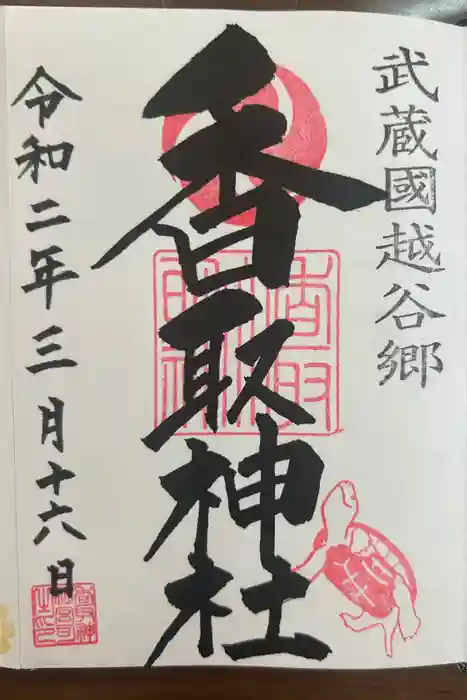 武蔵國越谷郷
香取神社
令和二年三月十六日